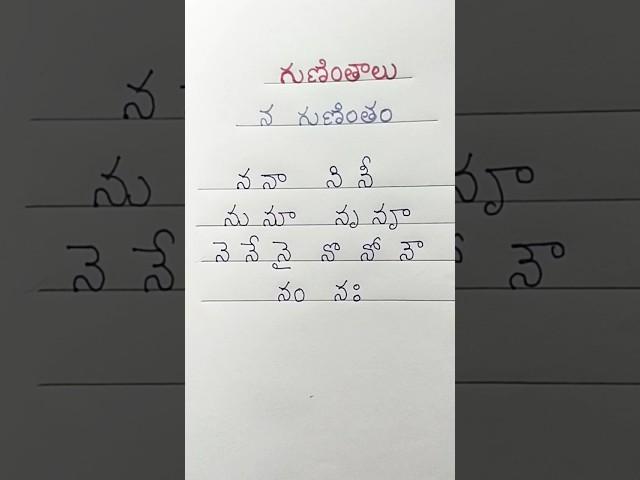 గుణింతాలు
న గుణింతం
న నా ని నీ
ను నూ నృ నౄ
నె నే నై నొ నో నౌ
నం నః